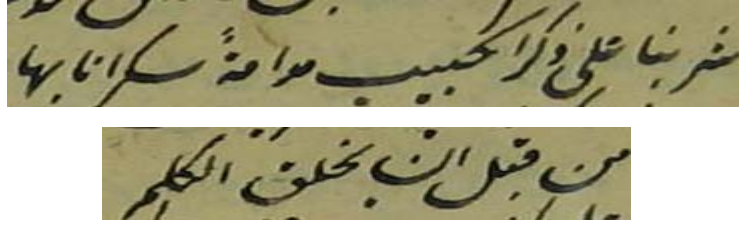 شربنا على ذكر الحبيب مدامةً سكرنا بها
من قبل ان يخلق الكلم